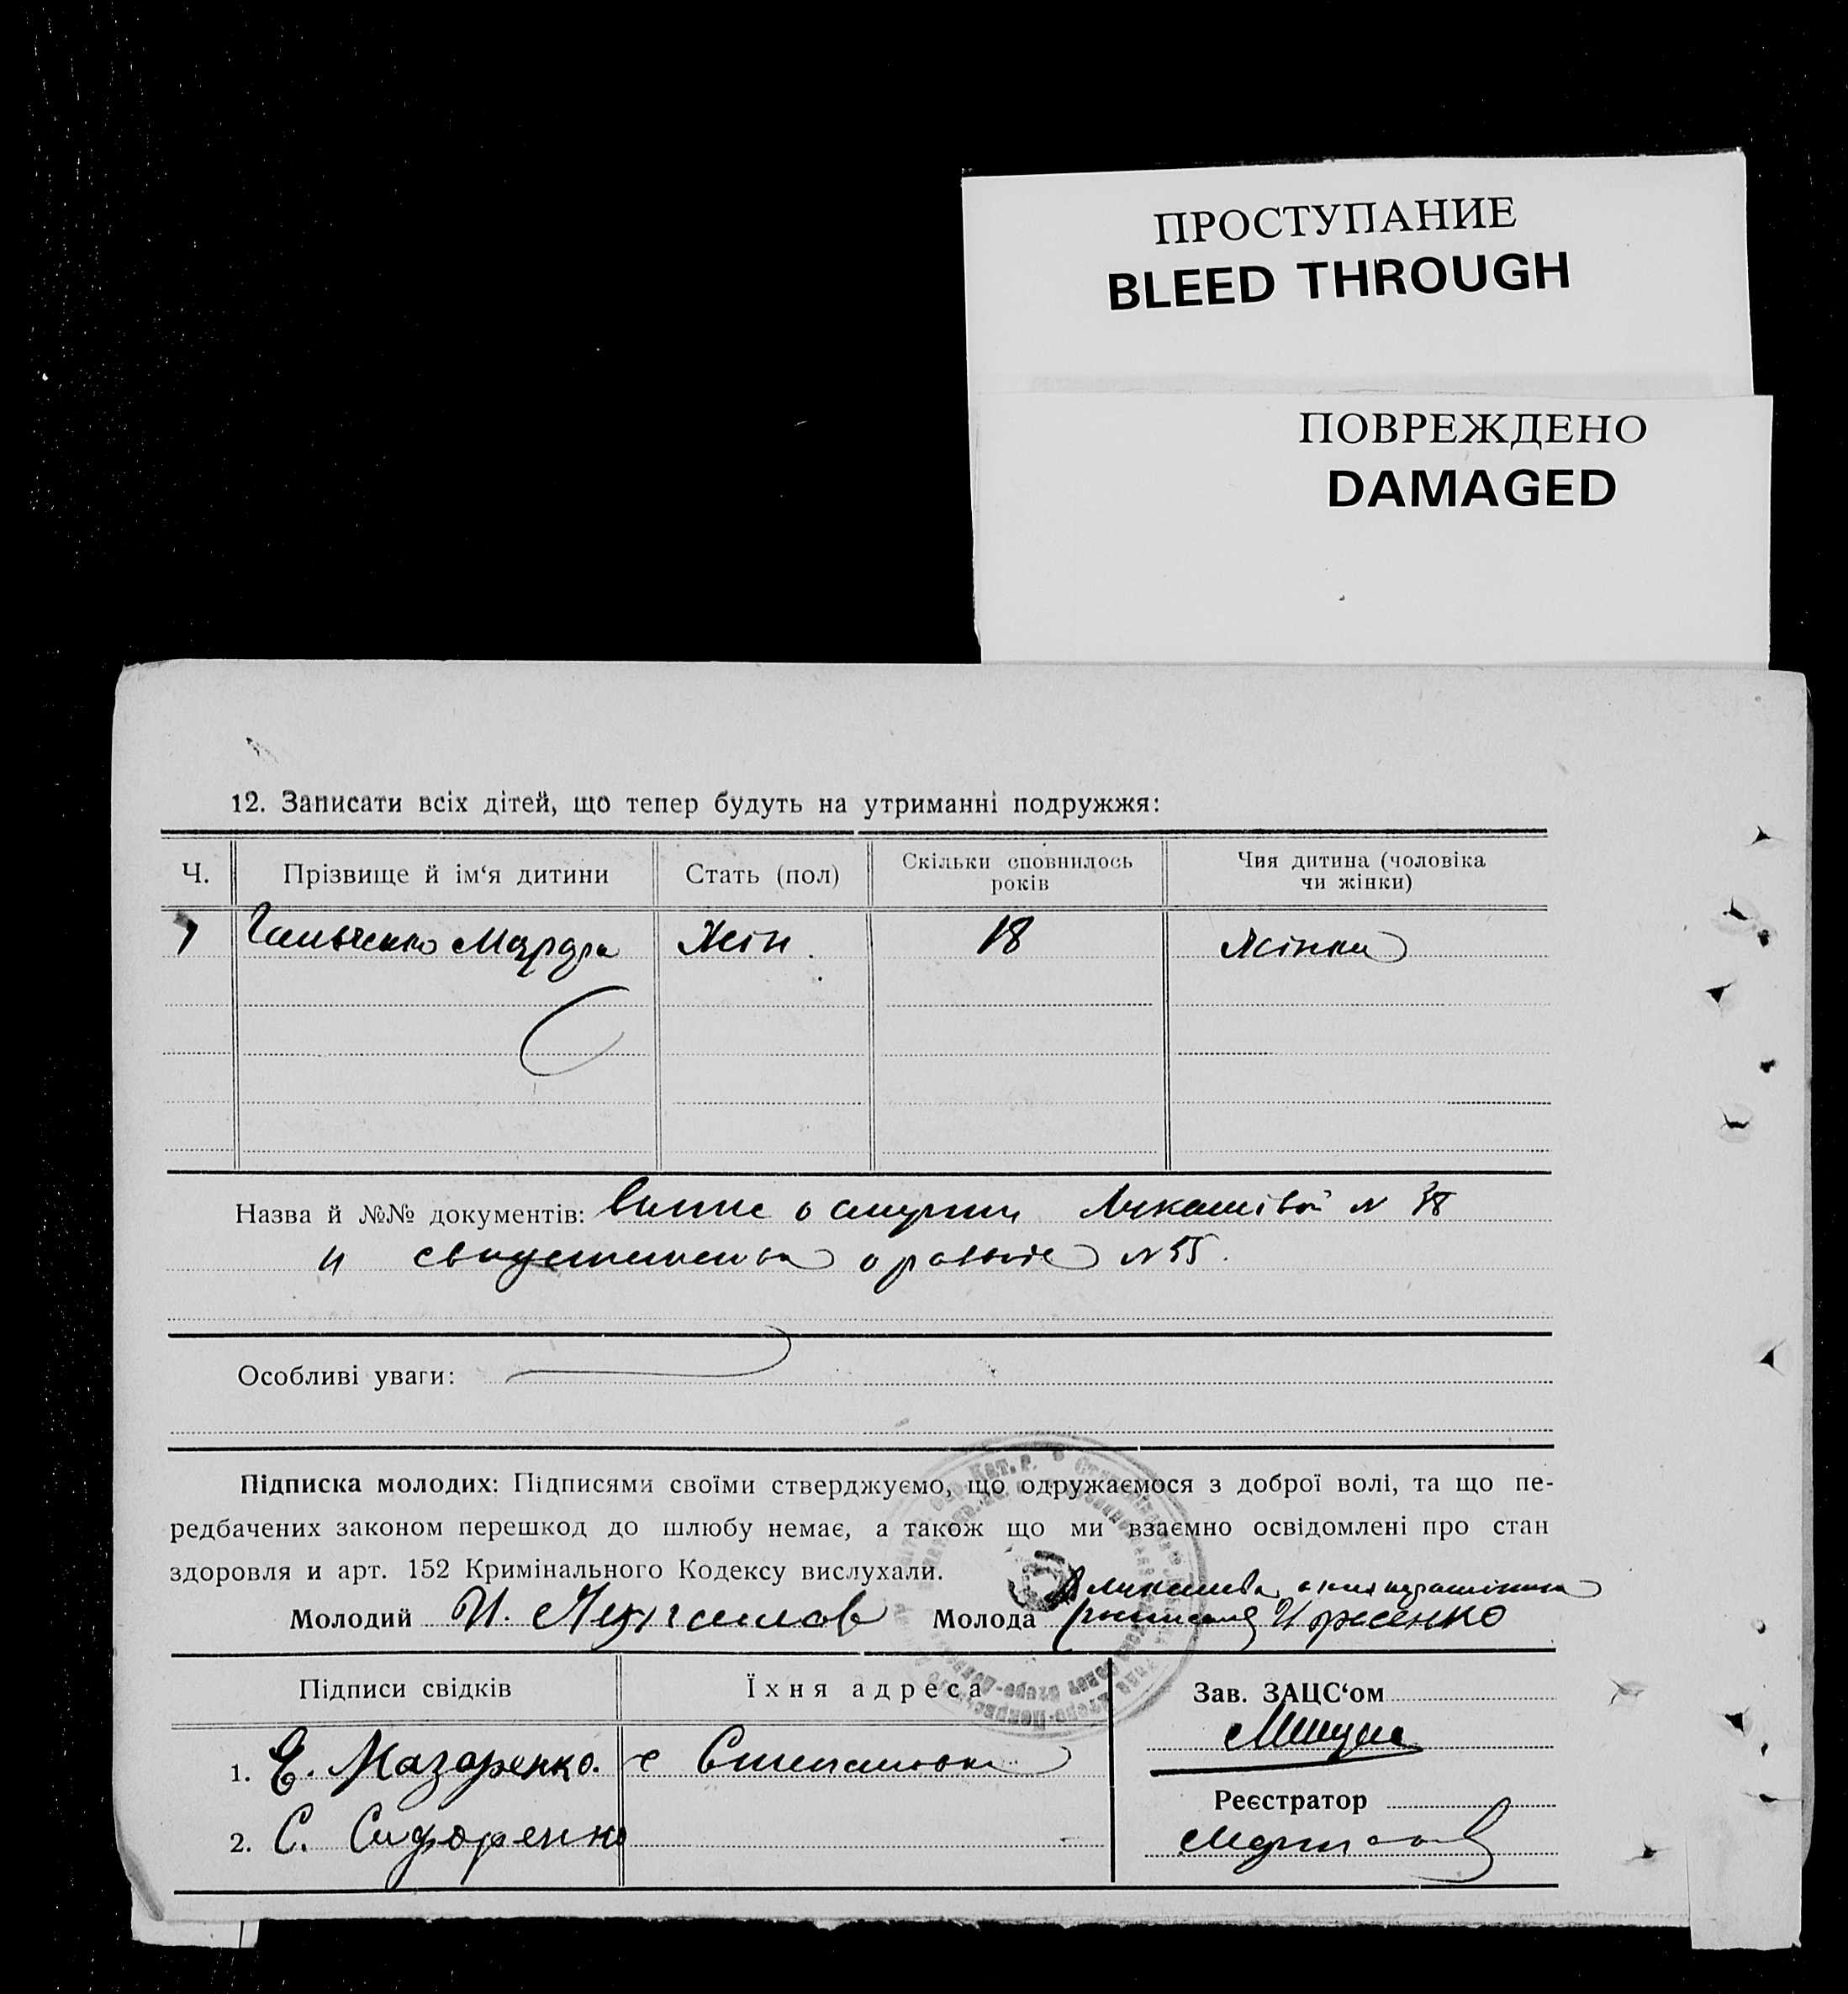 ПРОСТУПАНИЕ
BLEED THROUGH
ПОВРЕЖДЕНО
DAMAGED
12. Записати всіх дітей, що тепер будуть на утриманні подружжя:
Ч. Прізвище й ім‘я дитини Стать (пол) Скільки сповнилось років Чия дитина (чоловіка чи жінки)
1 Жін. 18 Жінки
Назва й №№ документів: о смерти N 38
и о N 55.
Особливі уваги:
Підписка молодих: Підписями своїми стверджуємо, що одружаємося з доброї волі, та що пе-
редбачених законом перешкод до шлюбу немає, а також що ми взаємно освідомлені про стан
здоровля и арт. 152 Кримінального Кодексу вислухали.
Молодий И. Молода
Підписи свідків Їхня адреса Зав. ЗАЦС‘ом
1. Е. Назаренко. с Степановка
Реєстратор
2. С. Сидоренко